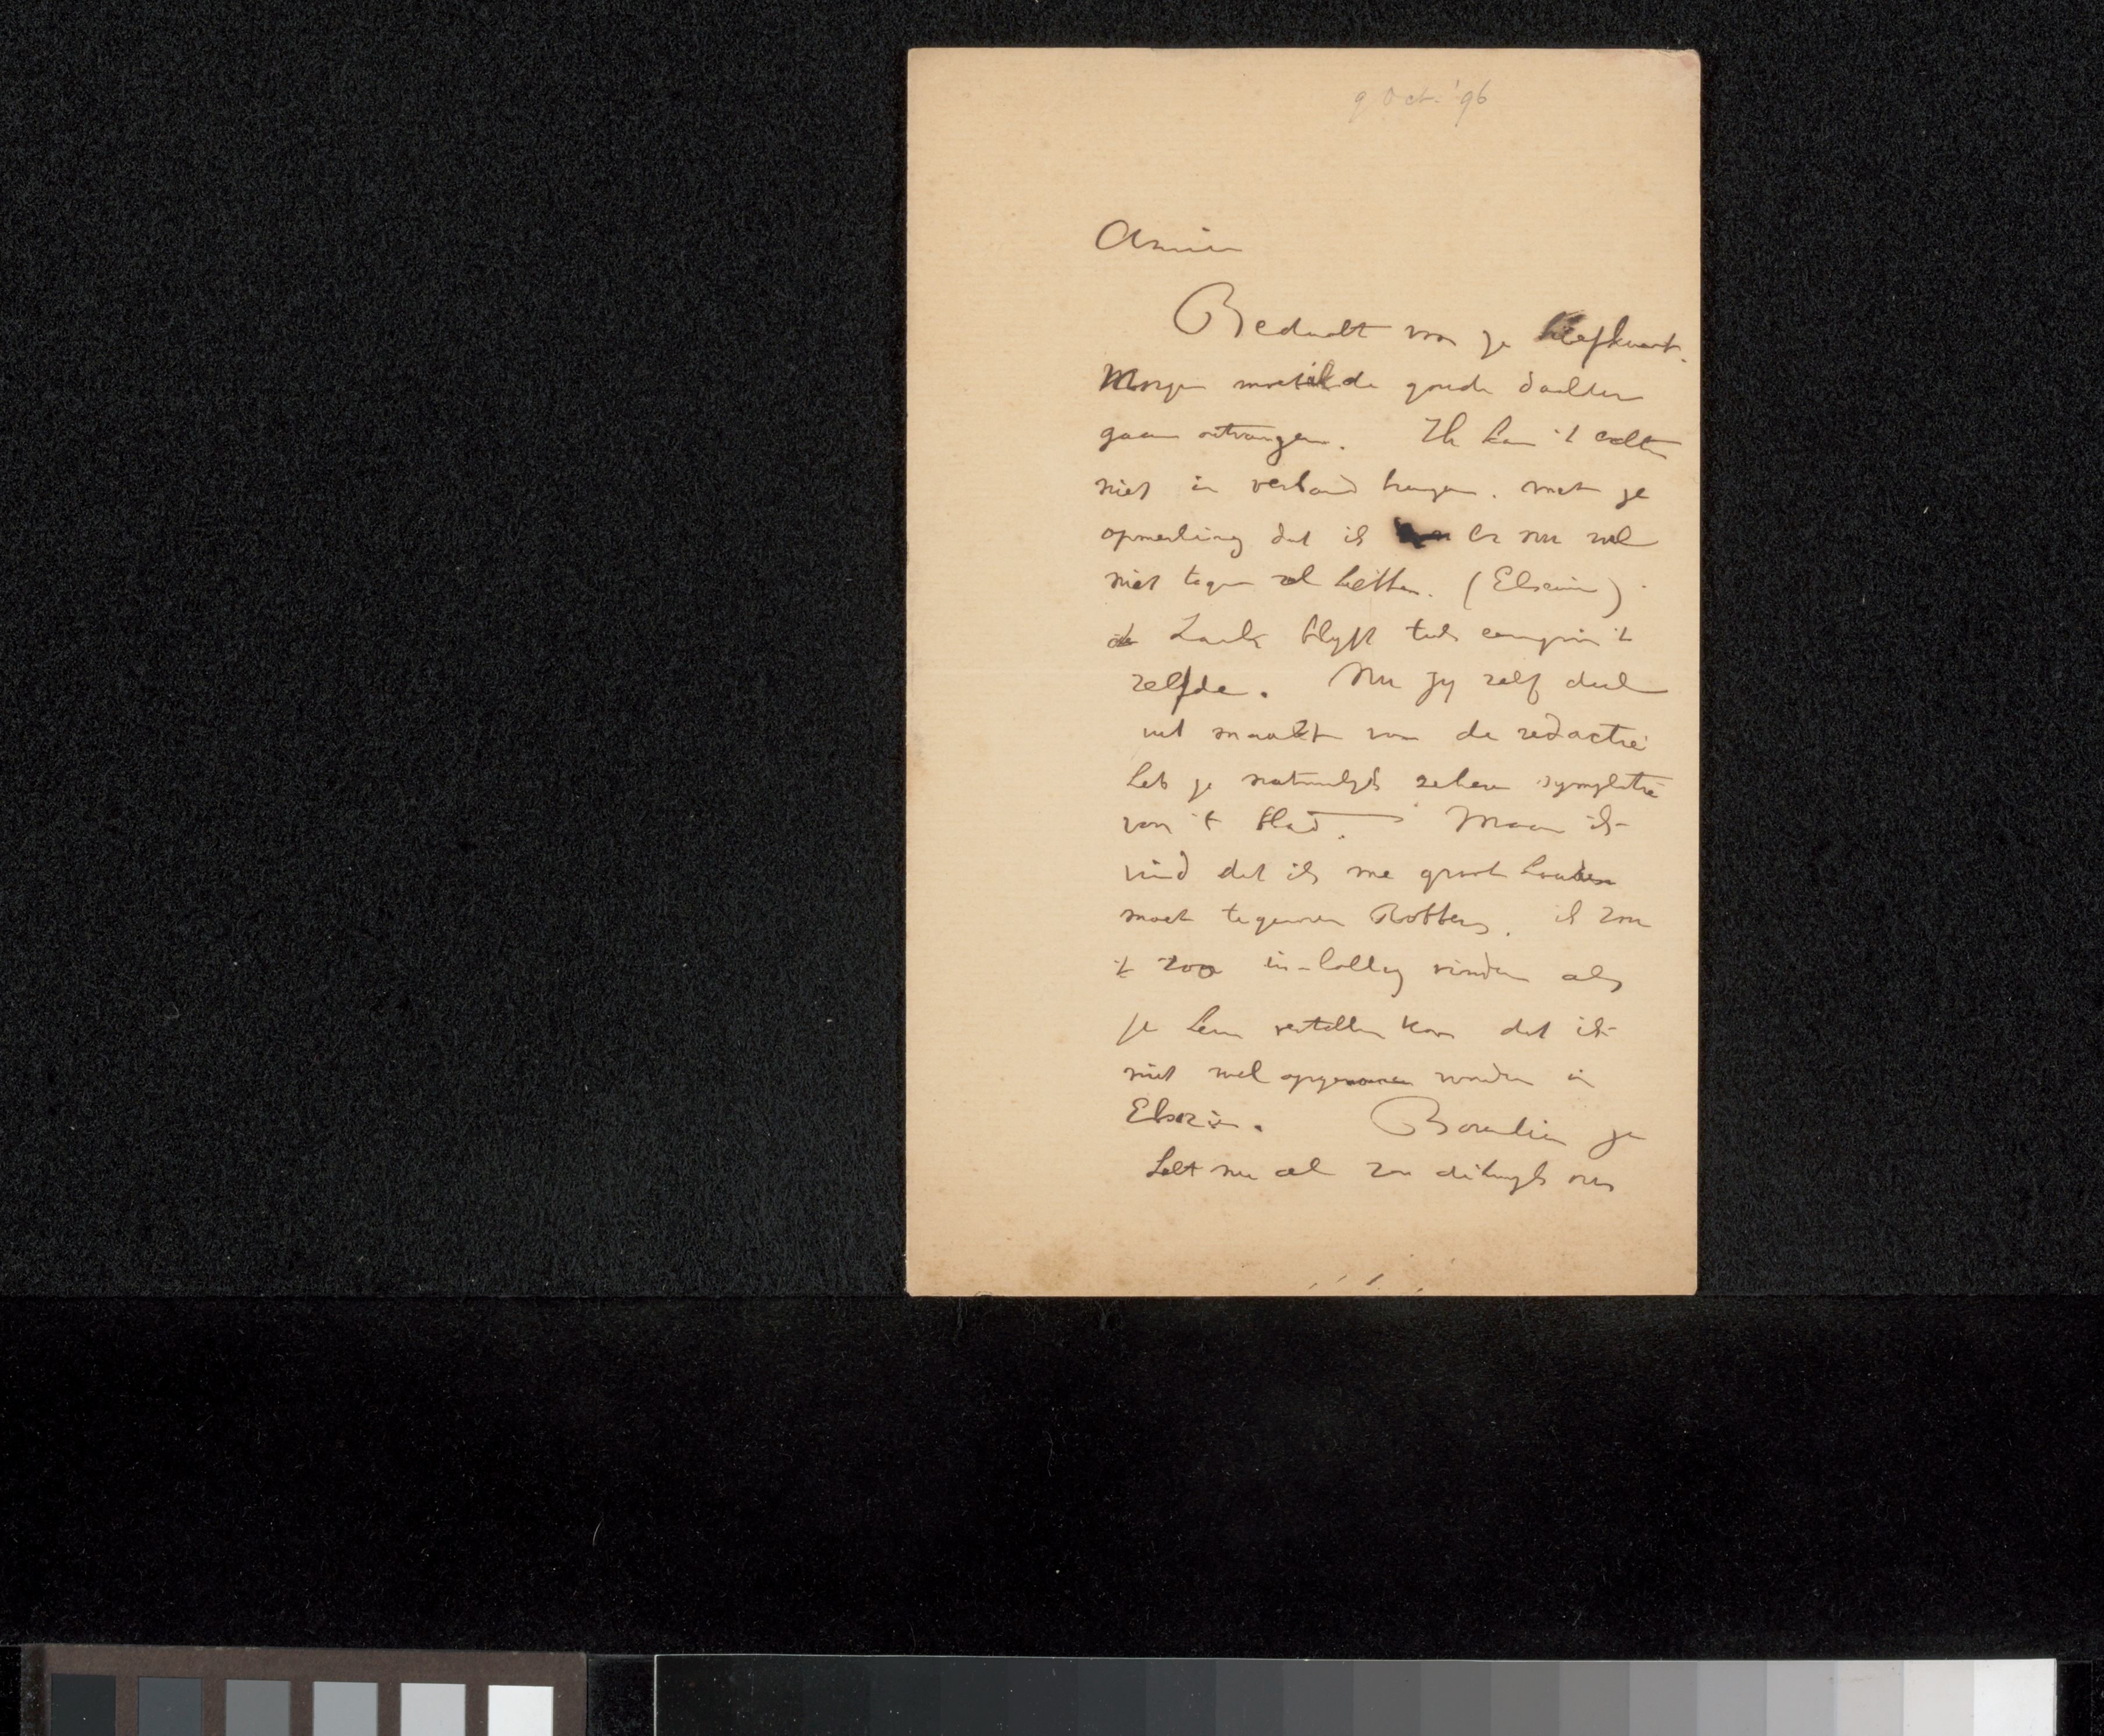 9 Oct. '96
Amice
Bedankt voor je briefkaart.
Morgen moet ik de goede daalder
gaan ontvangen. Ik kan 't echter
niet in verband brengen. met je
opmerking dat ik er nu wel
niet tegen zal hebben. (Elsevier)
de zaak blyft toch eenigzins 't
zelfde. Nu jy zelf deel
uit maakt van de redactie
heb je natuurlyk zekere sympathie
voor 't blad. Maar ik
vind dat ik me groot houden
moet tegenover Robbers. ik zou
't zoo in-lollig vinden als
je hem vertellen kon dat ik
niet wil opgenomen worden in
Elsevier. Bovendien je
hebt nu al zoo dikwyls over